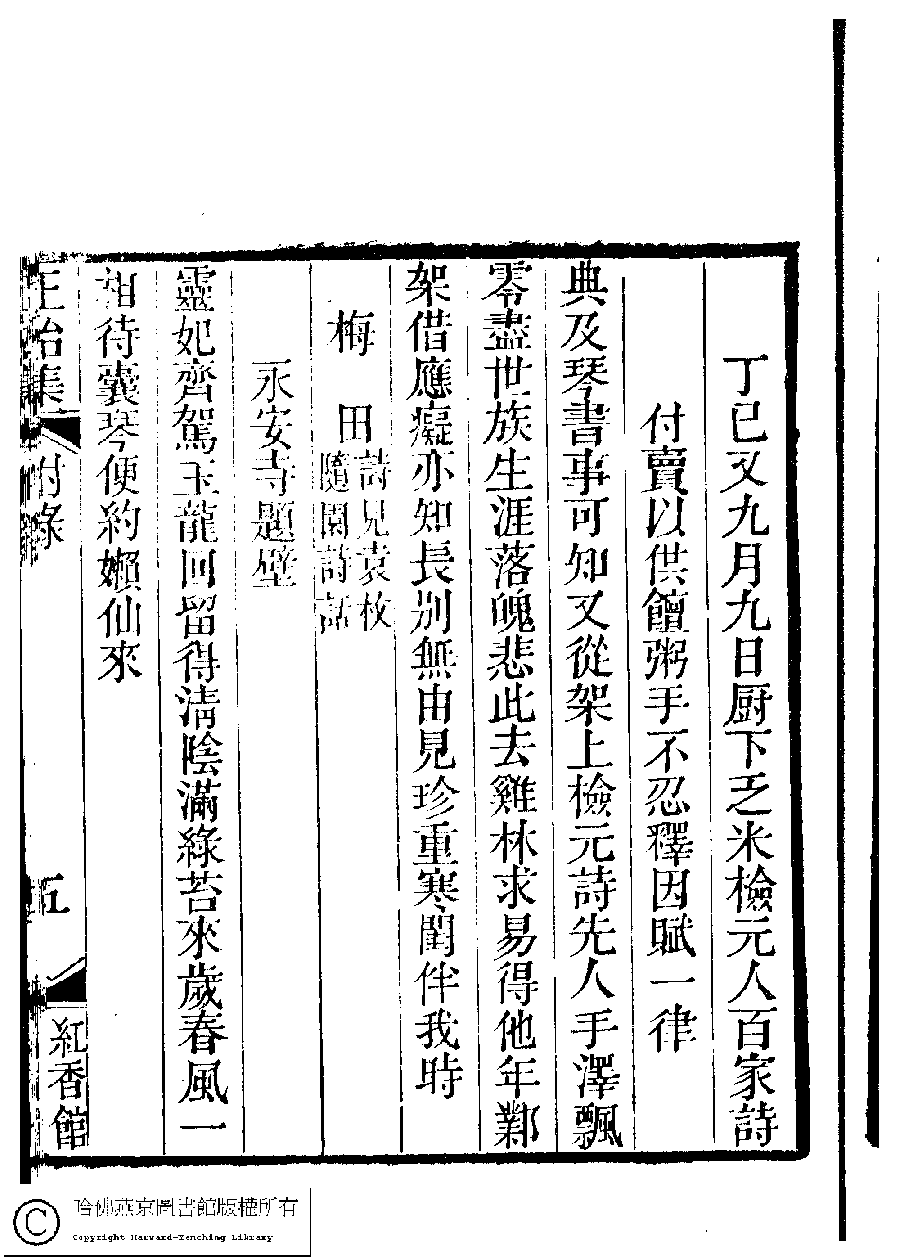 丁巳又九月九日厨下乏米檢元人百家詩
付賣以供饘粥手不忍釋因賦一律
典及琴書事可知又從架上檢元詩先人手澤飄
零盡世族生涯落魄悲此去雞林求易得他年鄴
架借應癡亦知長別無由見珍重寒閨伴我時
梅田 詩見袁枚
隨園詩話
永安寺題壁
靈妃齊駕玉龍回留得淸陰滿綠苔來歲春風一
相待囊琴便約嬾仙來
附錄
五
紅香館
哈佛燕京圖書館版權所有
Copyright Harvard-Yenching Library